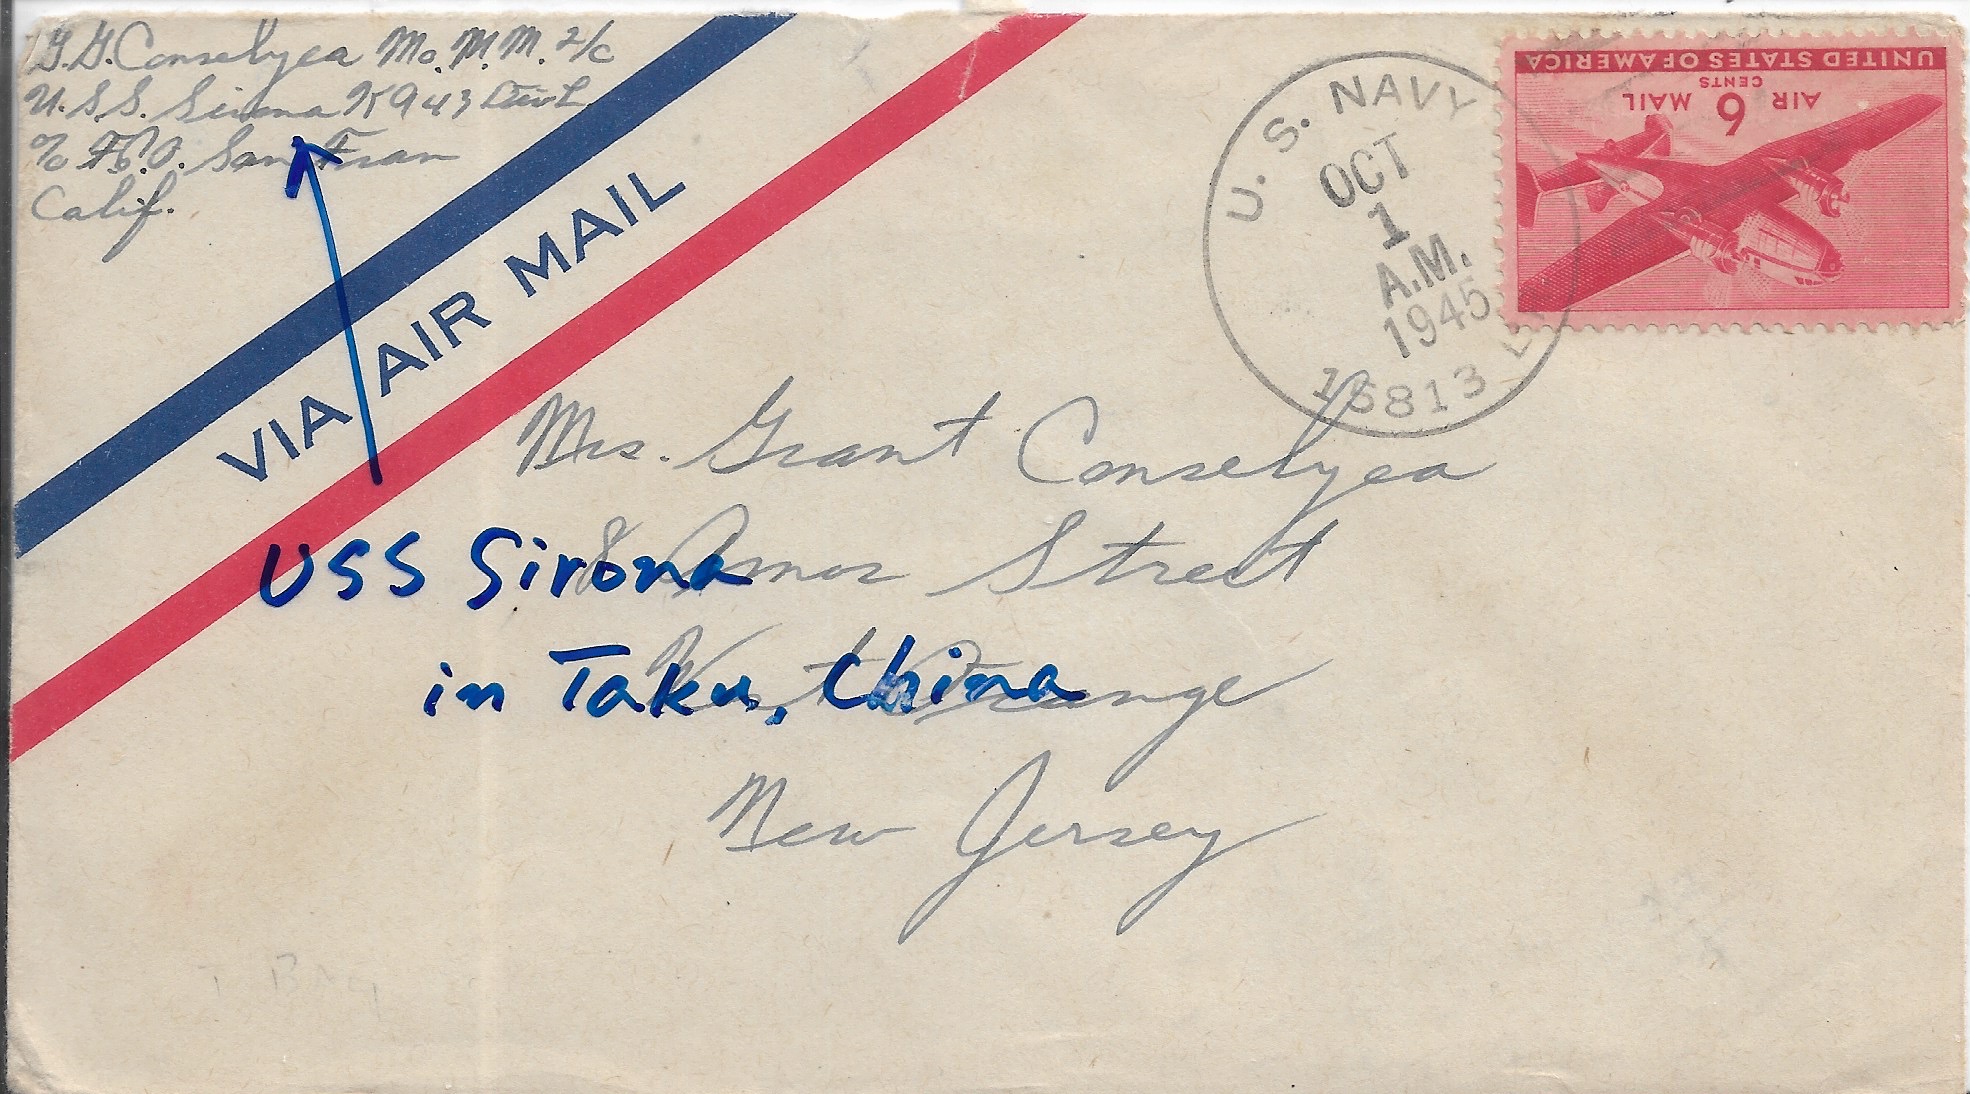 G.G. Conselyea Mo.M.M. 2/c
U.S.S. Sirona K943 Div L
c/o F.P.O. San Fran
Calif.
VIA AIR MAIL
U.S. NAVY
OCT
1
A.M.
1945
16813
UNITED STATES OF AMERICA
CENTS
AIR 6 MAIL
Mrs. Grant Conselyea
8 Street
USS Sirona
West Orange
in Taku, China
New Jersey